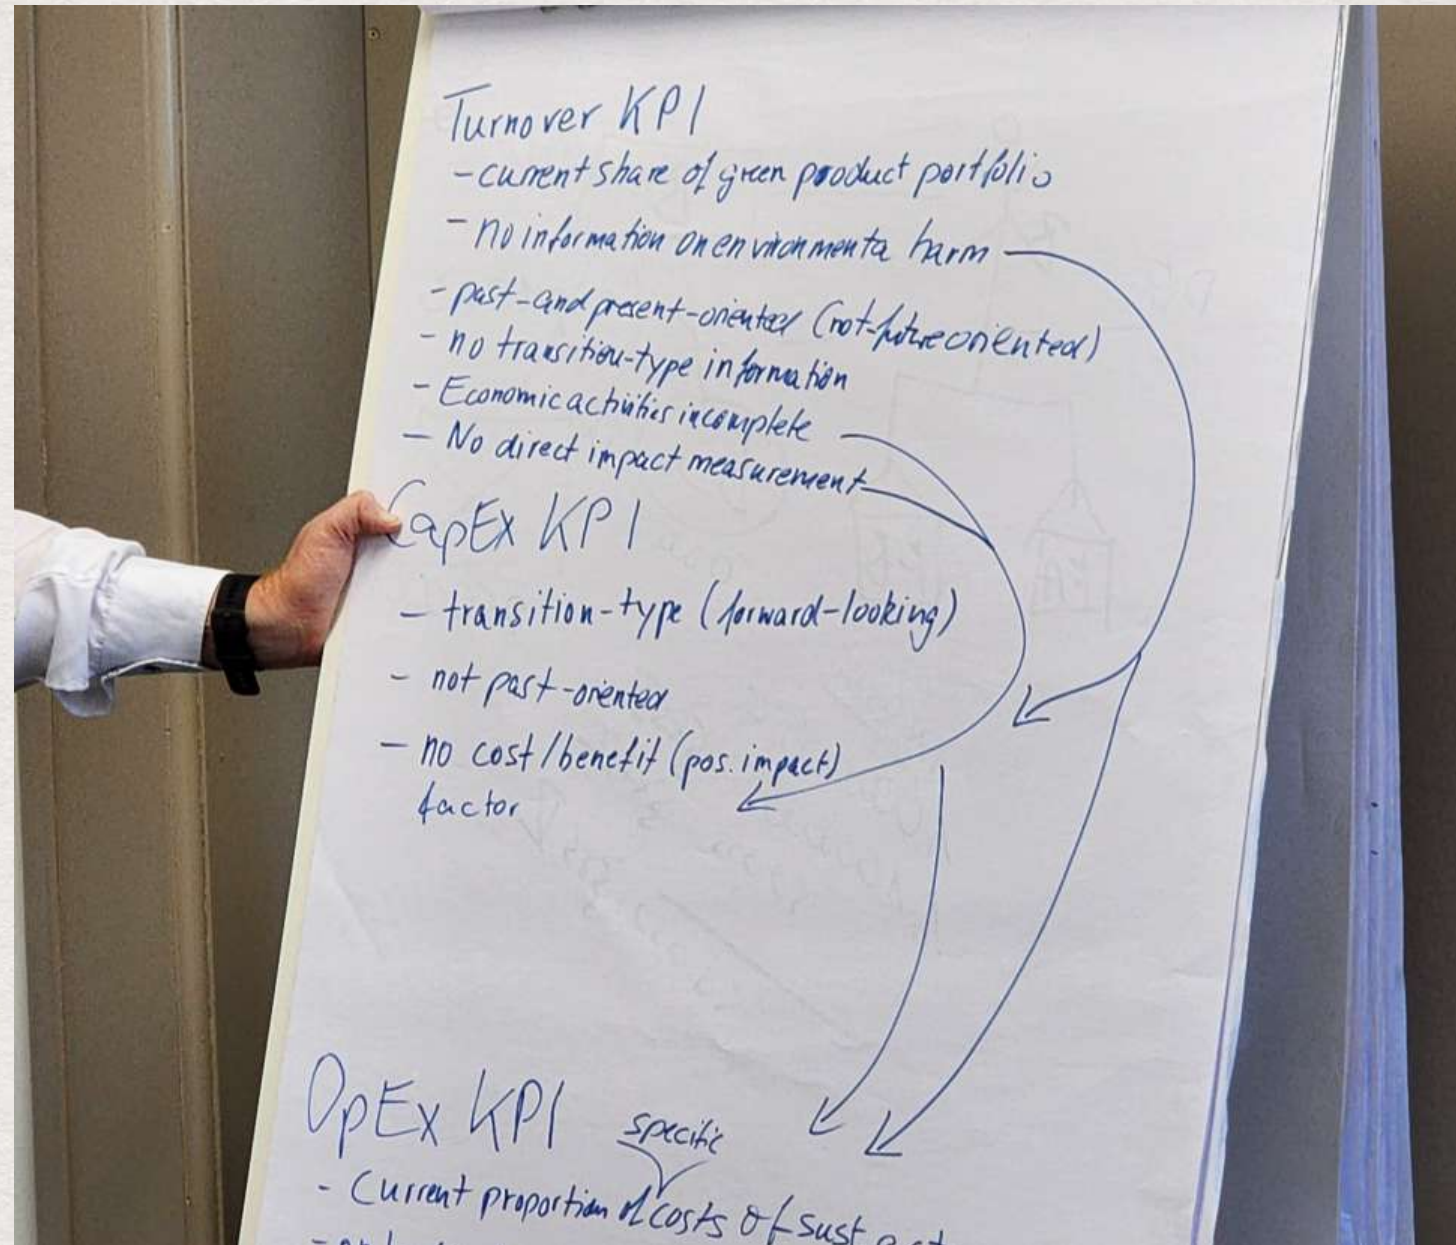 Turnover KPI
- current share of green product portfolio
- no information on environmenta harm
- past-and present-oriented (not-future oriented)
- no transition-type information
- Economic activities incomplete
- No direct impact measurement
CapEx KPI
- transition-type (forward-looking)
- not past-oriented
- no cost/benefit (pos. impact)
factor
OpEx KPI
specific
- Current proportion of costs of sust